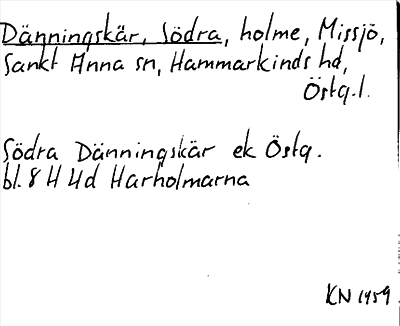 Dänningskär, Södra, holme, Missjö,
Sankt Anna sn, Hammarkinds hd,
Östg.l.
Södra Dänningskär ek Östg.
bl. 8 H 4d Harholmarna
KN 1959